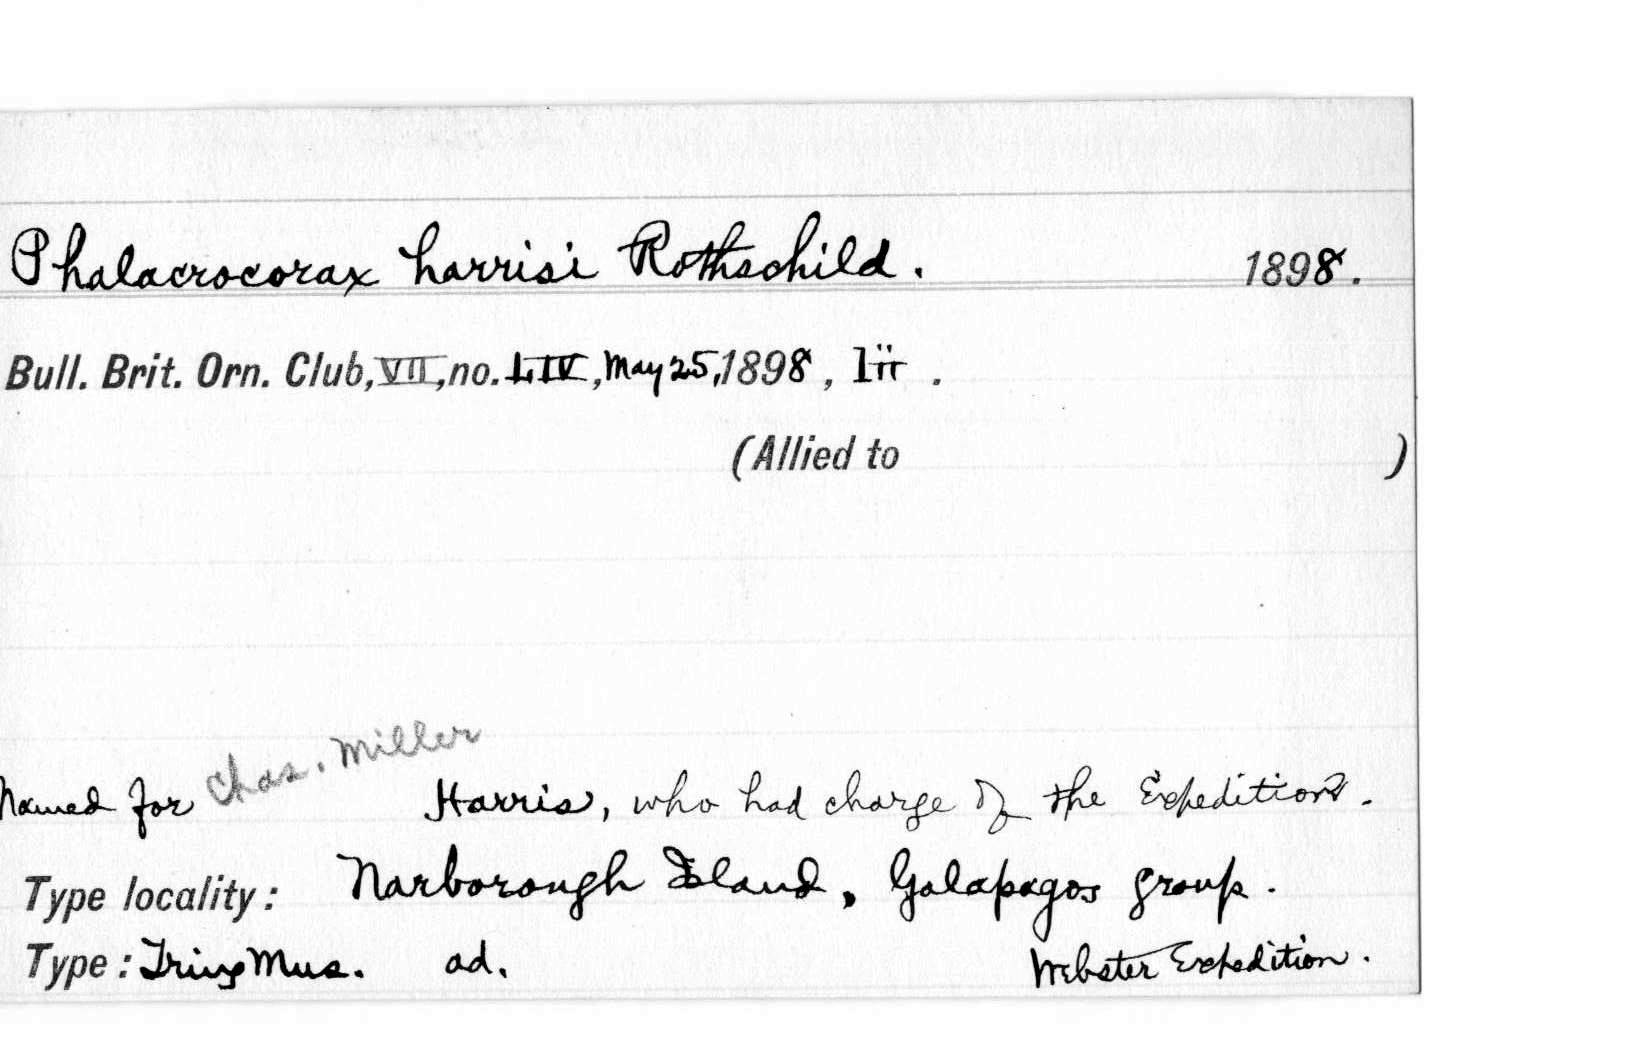 Phalacrocorax harrisi Rothschild. 1898.
Bull. Brit. Orn. Club, VII, no. LIV, May 25, 1898, lii.
(Allied to )
Named for Chas. Miller Harris, who had charge of the Expedition.
Type locality: Narborough Island, Galapagos group.
Type: Tring Mus. ad. Webster Expedition.